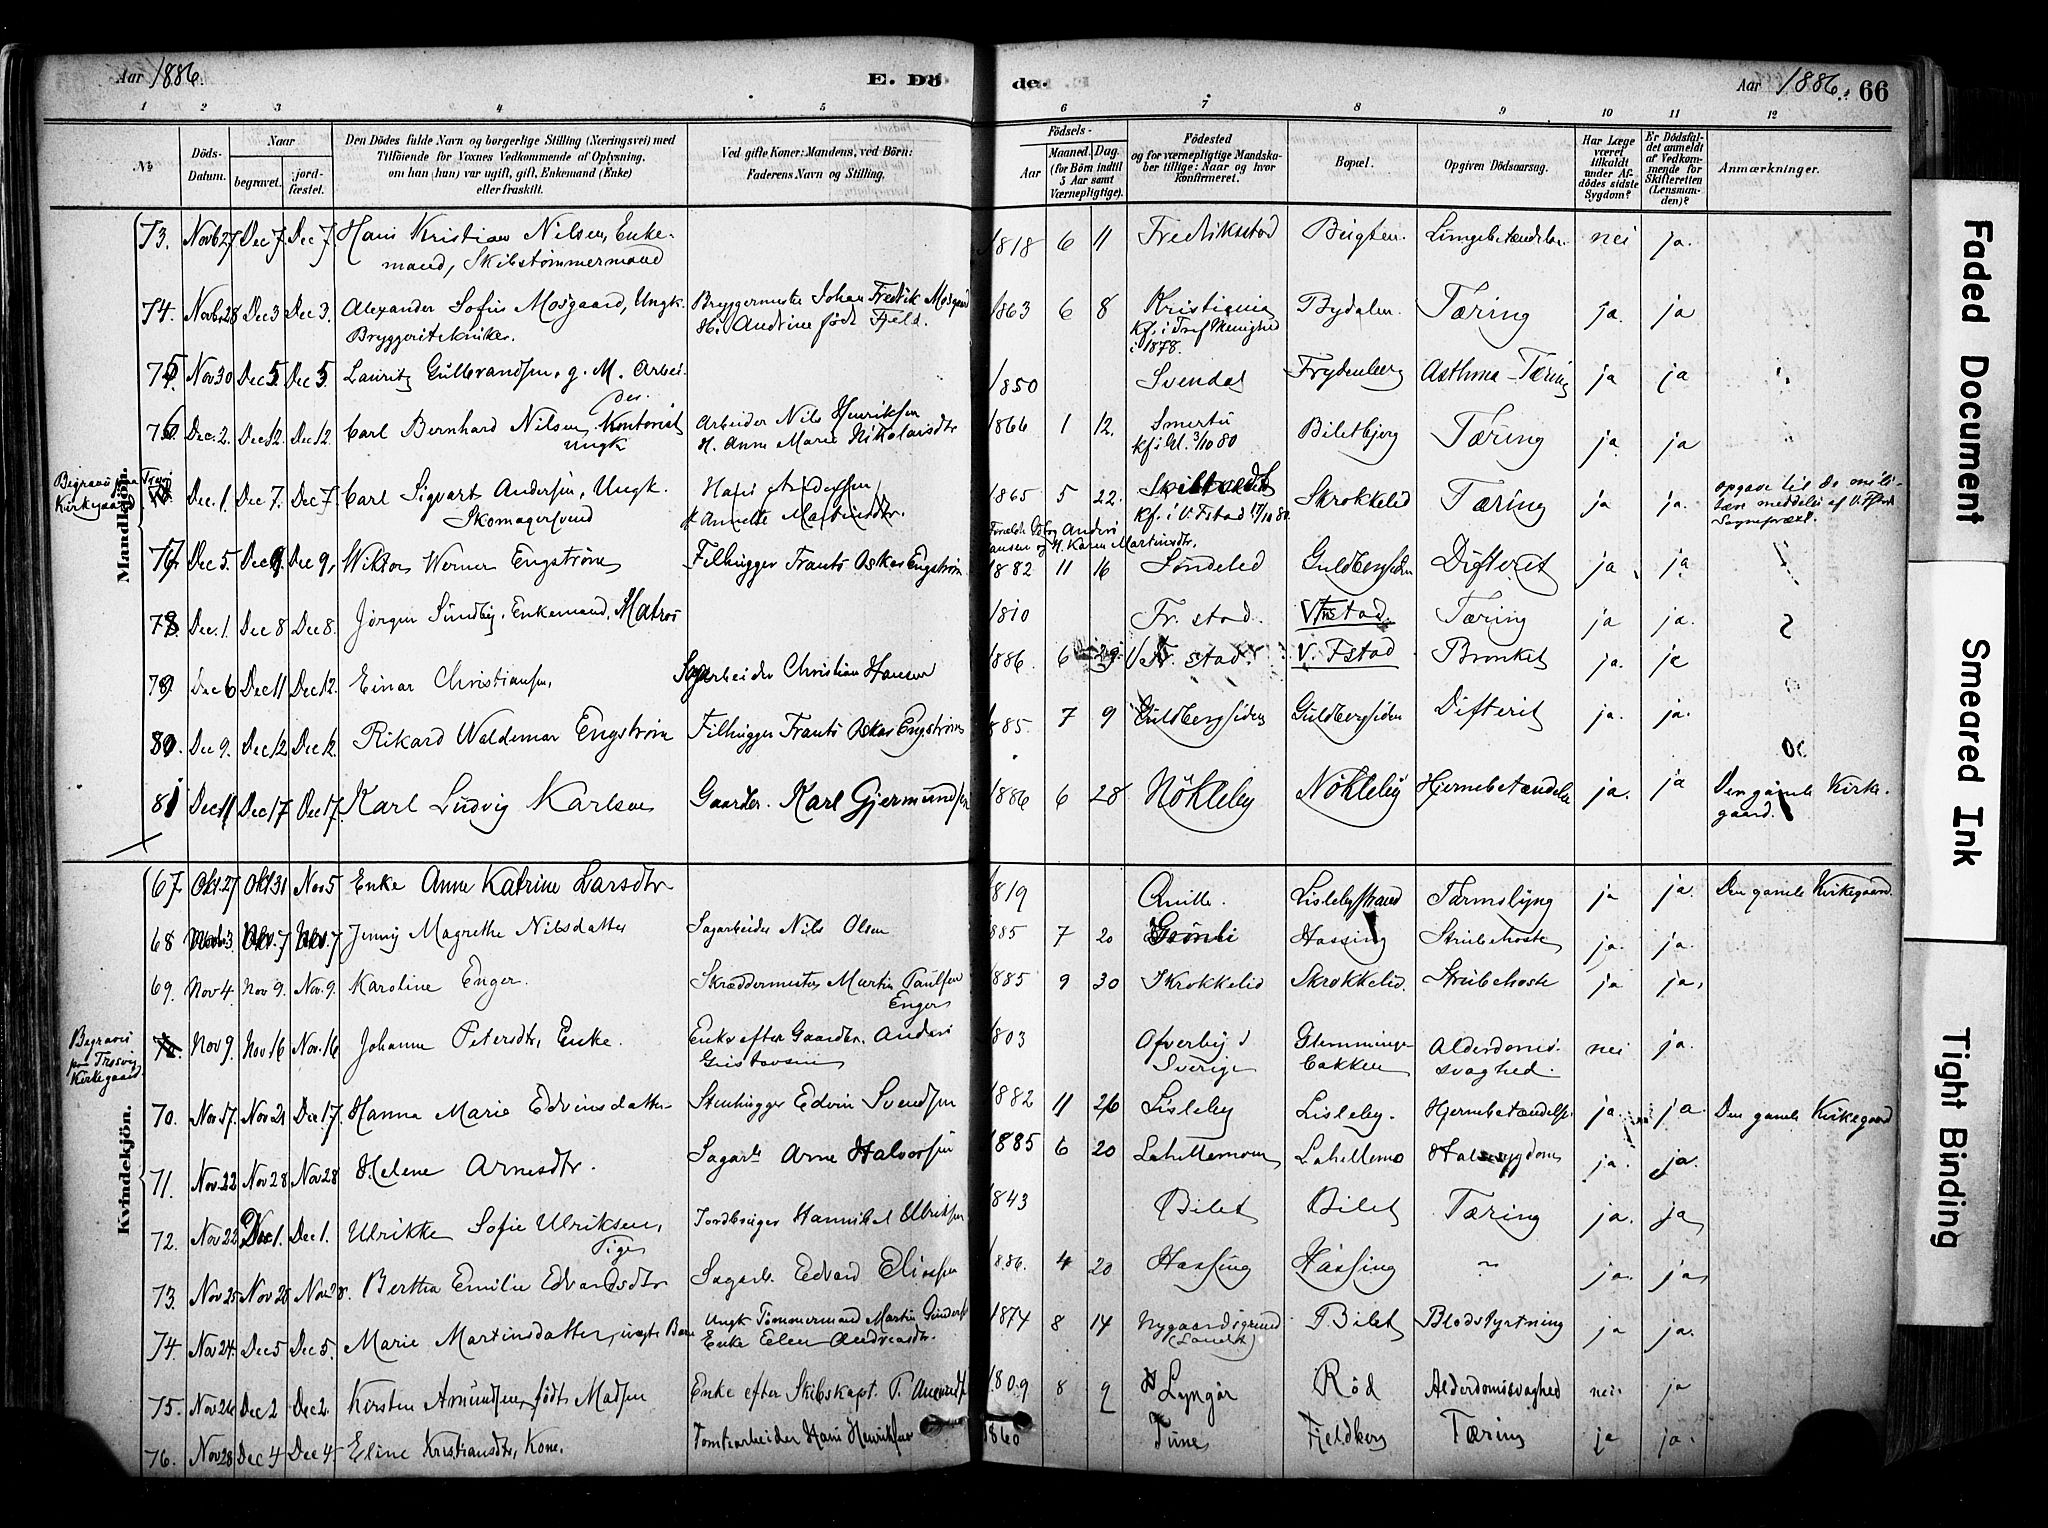 Aar 1886. E. Dö
de. Aar 1886. 66
1 2 3 4 5 6 7 8 9 10 11 12
No. Döds-Datum. Naar begravet. jord-fæstet. Den Dödes fulde Navn og borgerlige Stilling (Næringsvei) med Tilföiende for Voxnes Vedkommende af Oplysning, om han (hun) var ugift, gift, Enkemand (Enke) eller fraskilt. Ved gifte Koner: Mandens, ved Börn: Faderens Navn og Stilling. Födsels- Aar Maaned. Dag. (for Börn indtil 5 Aar samt Værnepligtige). Födested og for værnepligtige Mandskaber tillige: Naar og hvor konfirmeret. Bopæl. Opgiven Dödsaarsag. Har Læge været tilkaldt under Afdödes sidste Sygdom? Er Dödsfaldet anmeldt af Vedkommende for Skifteretten (Lensmanden)? Anmærkninger.
Mandkjön.
73. Novb 27 Dec 7. Dec 7. Hans Kristian Nilsen, Enke- 1818 6 11 Fredrikstad nei ja.
mand, Skibstømmermand
74. Novb. 28 Dec 3 Dec 3. Alexander Sofus Mosgaard, Ungk. Bryggermester Johan Fredrik Mosgaard 1863 6 8 Kristiania Bydalen. Tæring ja. ja
Bryggeritekniker. Andrine født Fjeld. 1878.
75. Nov 30 Dec 5. Dec 5. Lauritz Gulbrandsen, g. M. Arbei- 1850 Svendal Frydenberg Asthma-Tæring ja ja
der.
76. Dec. 2. Dec 12. Dec 12. Carl Bernhard Nilsen, Kontorist Arbeider Nils Henriksen 1866 1 12. Biletbjerg Tæring ja. ja
Ungk H. Anne Marie Nikolaisdtr 3/10 80
Dec. 1. Dec 7. Dec 7. Carl Sigvart Andersen, Ungk. Hans Andersen 1865 5 22. Skrokkelid Tæring ja ja.
Skomagersvend Annette Martinsdtr. kf. i V. Fstad
77. Dec 5. Dec 9. Dec 9. Viktor Werner Engström Filhugger Frants Oskar Engström 1882 11 16 Guldbergsiden Difterit ja ja
78. Dec. 1 Dec 8 Dec 8. Jörgen Sundby, Enkemand, Matros 1810 Fr. stad. Tæring ja ja.
79. Dec 6 Dec 11 Dec 12. Einar Christiansen, Sagarbeider Christian Hansen 1886. 6 29. V. Fstad Bronkit ja. ja
80. Dec 9. Dec 12 Dec 12. Rikard Waldemar Engström Filhugger Frants Oskar Engström 1885. 7 9 Guldbergsiden Guldbergsiden Difterit ja. ja.
81 Dec 11 Dec 17 Dec 17. Karl Ludvig Karlsen Gaardbr. Karl Gjermundsen 1886 6 28 Nökleby Nökleby Hjernebetændelse ja. ja Den gamle Kirke-
gaard.
Kvindekjön.
67. Okt. 27 Okt 31 Nov 5 Enke Anne Katrine Larsdtr 1819 Qville. Lislebystrand Tarmslyng ja ja. Den gamle Kirkegaard.
68 Nov. 3 Nov. 7 Nov. 7 Jenny Magrethe Nilsdatter Sagarbeider Nils Olsen 1885 7 20 Grönli Hassing Strubehoste ja. ja.
69. Nov 4. Nov 9. Nov. 9. Karoline Enger. Skræddermester Martin Paulsen 1885 9 30 Skrokkelid Skrokkelid. Strubehoste ja ja.
Enger
Begravet paa Tresvig Kirkegaard.
Nov 9. Nov 16 Nov. 16 Johanne Petersdtr, Enke. Enke efter Gaardbr. Anders 1803 Glemminge- Alderdoms- nei ja.
Sverige bakken svaghed.
70. Nov 17. Nov 21 Dec 17. Hanna Marie Edvinsdatter Stenhugger Edvin Svendsen 1882 11 26 Lisleby Lisleby. Hjernebetændelse ja. ja Den gamle Kirkegaard
71. Nov. 22 Nov 28 Nov 28 Helene Arnesdtr. Sagarb. Arne Halvorsen 1885 6 20 Lahellemoen Lahellemo Halssygdom ja. ja.
72. Nov 22 Dec 1. Dec 1. Ulrikke Sofie Ulriksen, Jordbruger Hannibal Ulriksen 1843 Bilet Bilet Tæring ja. ja
Pige
73. Nov 25 Nov 28 Nov 28. Bertha Emilie Edvardsdtr Sagarb. Edvard Eliassen 1886. 4 20 Hassing Hassing " ja. ja
74. Nov 24. Dec 5 Dec 5. Marie Martinsdatter, uægte Barn Ungk Tömmermand Martin 1874 8 14 Nygaardsgrund Bilet Blodstyrtning ja ja.
Enke Elen Andreasdtr.
75. Nov 26 Dec 2 Dec 2. Kirsten Amundsen, födt Madsen Enke efter Skibskapt. P. Amundsen 1809 8 9 Lyngör Röd Alderdomssvaghed nei ja
76. Nov 28 Dec 4 Dec 4. Eline Kristiansdtr, Kone. Tomtearbeider Hans Henriksen 1860 Tune Fjeldberg Tæring ja ja.
Faded Document
Smeared Ink
Tight Binding